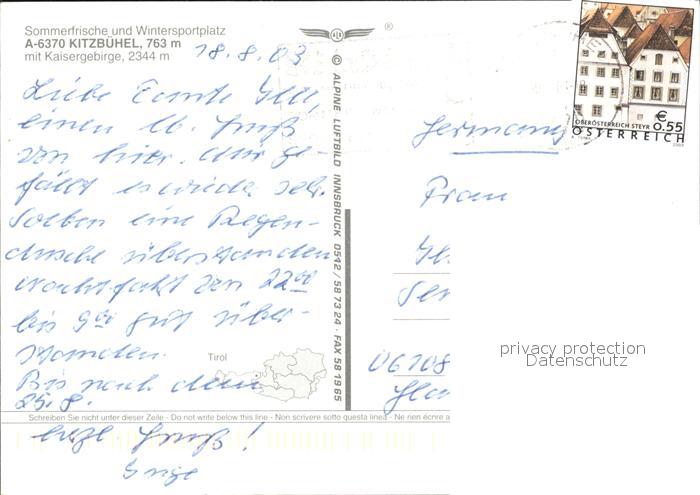 Sommerfrische und Wintersportplatz
A-6370 KITZBÜHEL, 763 m
mit Kaisergebirge, 2344 m
18.8.03
Liebe
einen lb. Gruß
von hier. Mir ge-
fällt es wieder sehr.
Soeben eine Regen-
dusche überstanden
Nachtfahrt von 22 00
bis 9 00 gut über-
standen.
Bis nach dem
25.8.
herzl. Gruß!
Inge
Tirol
Schreiben Sie nicht unter dieser Zeile - Do not write below this line - Non scrivere sotto questa linea - Ne rien écrire a
© ALPINE LUFTBILD INNSBRUCK 0512/58 73 24 · FAX 58 19 65
®
OBERÖSTERREICH STEYR
€ 0.55
ÖSTERREICH
Germany
Frau
06108
privacy protection
Datenschutz